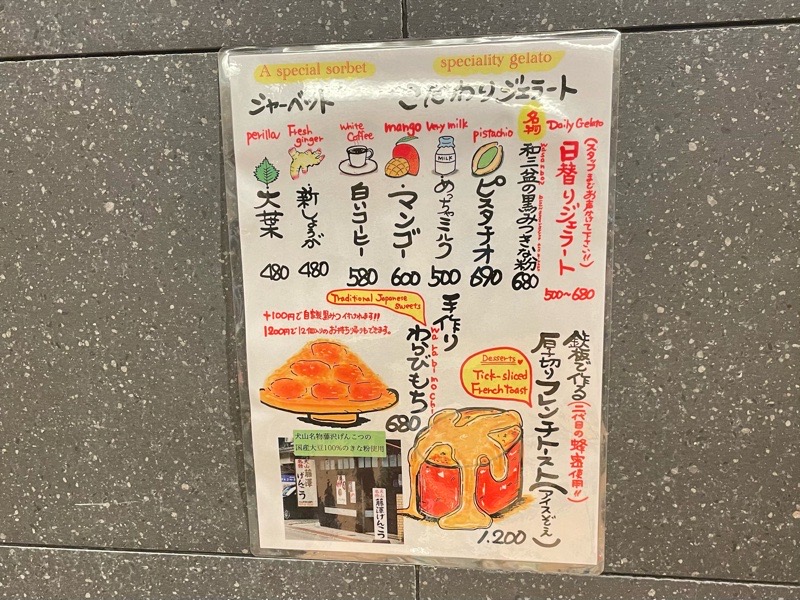 A special sorbet
speciality gelato
シャーベット
こだわりジェラート
perilla
大葉
480
Fresh ginger
新しょうが
480
white coffee
白いコーヒー
580
mango
マンゴー
600
very milk
MILK
めっちゃミルク
500
pistachio
ピスタチオ
690
名物
和三盆の黒みつきな粉
680
Daily Gelato
日替りジェラート
(スタッフまでお声付て下さい!!)
500~680
+100円で自家製黒みつ付けれます!!
1200円で12個入りのお持ち帰りもできます。
Traditional Japanese
Sweets
手作り
わらびもち
warabimochi
680
犬山名物藤沢げんこつの
国産大豆100%のきな粉使用
Desserts
Tick-sliced
French toast
鉄板で作る
厚切りフレンチトースト(アイスぞえ)
(二代目の蜂蜜使用!!)
1.200